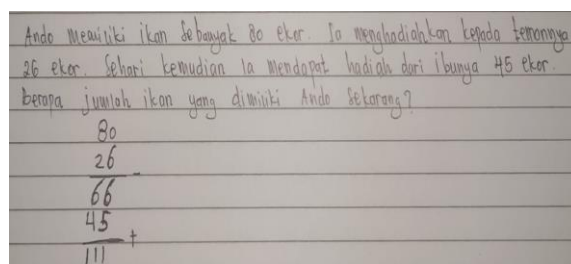 Ando memiliki ikan sebanyak 80 ekor. Ia menghadiahkan kepada temannya
26 ekor. Sehari kemudian Ia mendapat hadiah dari ibunya 45 ekor.
berapa jumlah ikan yang dimiliki Ando Sekarang?
80
26 -
66
45 +
111